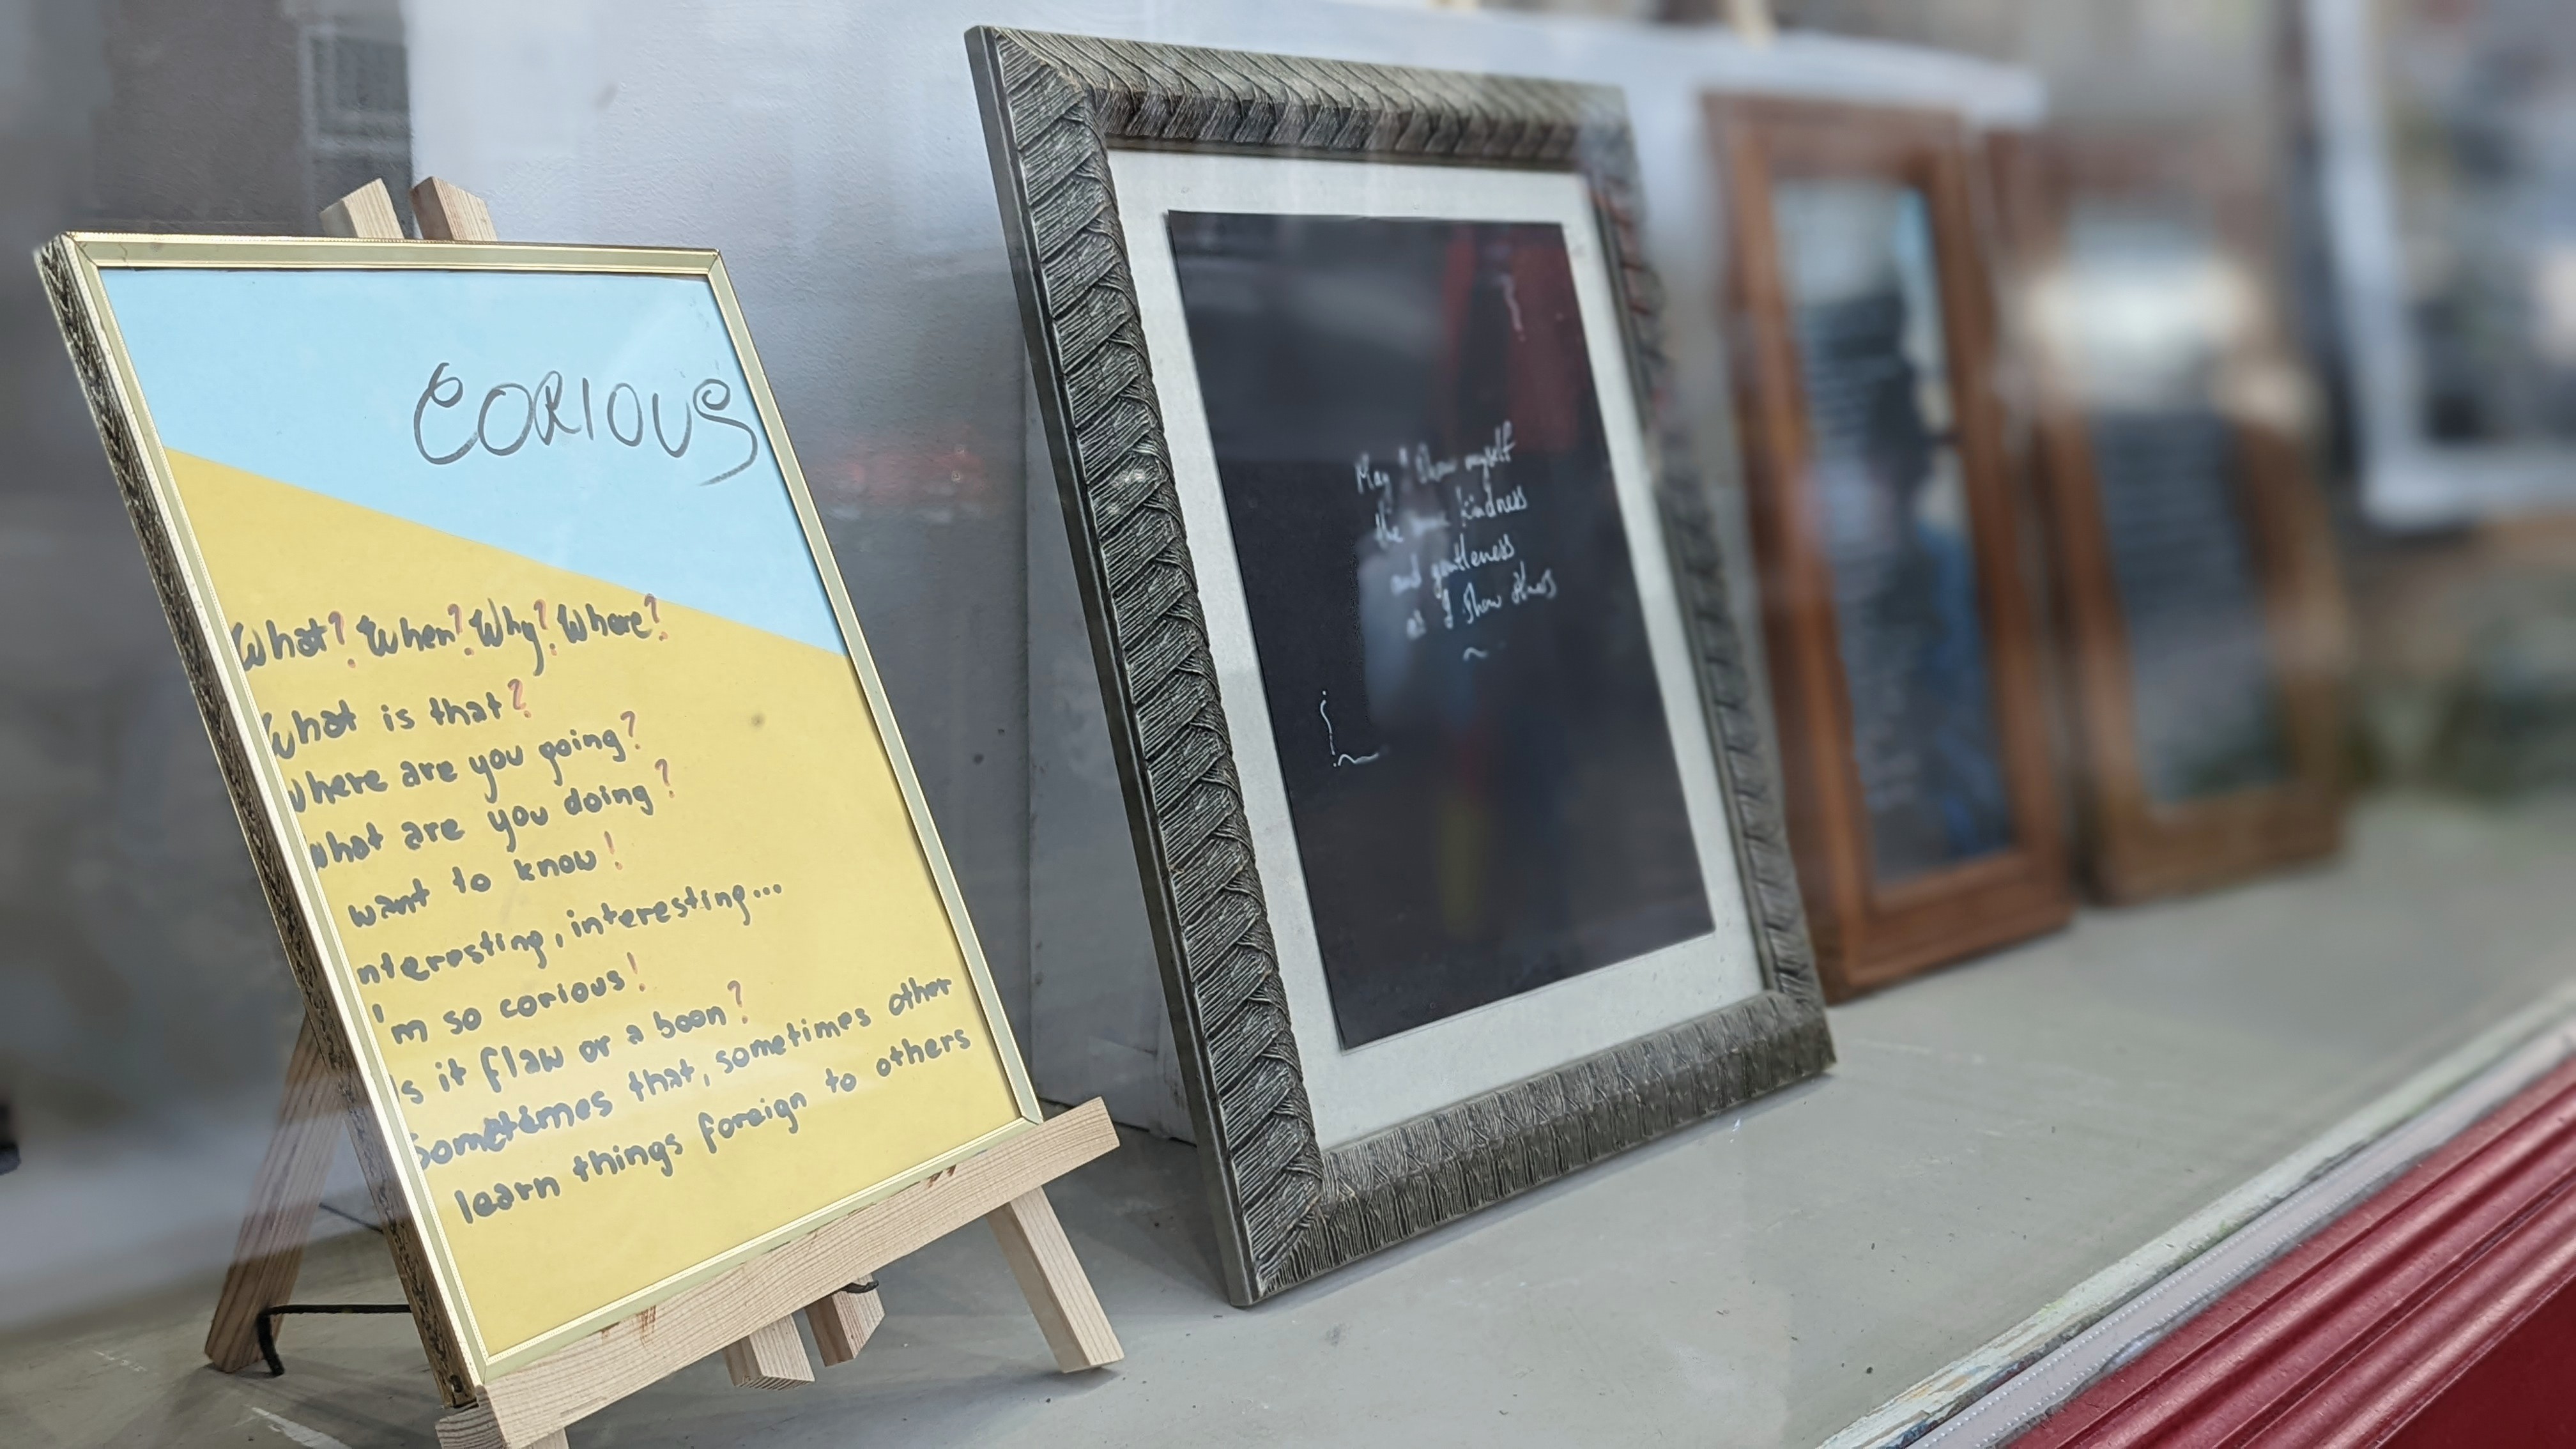 CORIOUS
What? When? Why? Where?
What is that?
where are you going?
what are you doing?
want to know!
nteresting, interesting...
'm so corious!
s it flaw or a boon?
sometimes that, sometimes other
learn things foreign to others
May I show myself
the same kindness
and gentleness
as I show others